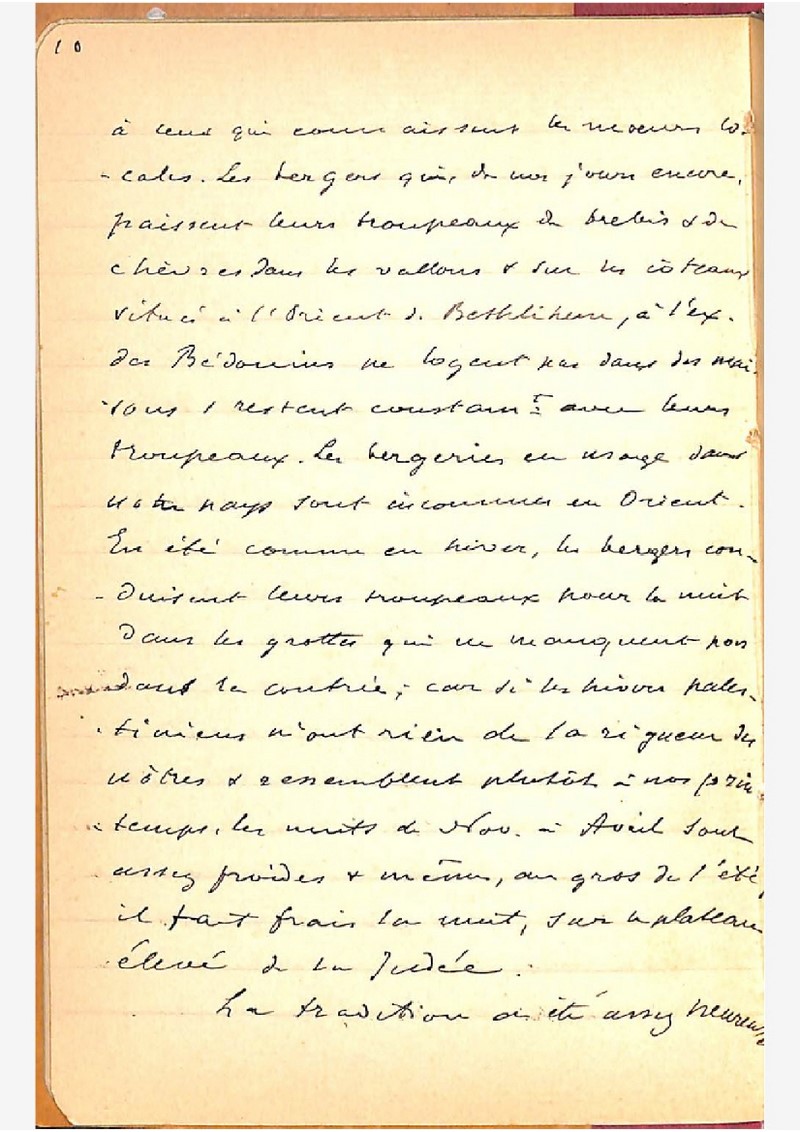 10
à ceux qui connaissent les moeurs lo-
-cales. Les bergers qui, de nos jours encore,
paissent leurs troupeaux de brebis & de
chèvres dans les vallons & sur les côteaux
situés à l'Orient de Bethléhem, à l'ex.
des Bédouins ne logent pas dans des mai-
-sons & restent constamt avec leurs
troupeaux. Les bergeries en usage dans
notre pays sont inconnues en Orient.
En été comme en hiver, les bergers con-
-duisent leurs troupeaux pour la nuit
dans les grottes qui ne manquent pas
dans la contrée; car si les hivers pales-
-tiniens n'ont rien de la rigueur des
nôtres & ressemblent plutôt à nos prin-
-temps, les nuits de Nov. à Avril sont
assez froides & même, au gros de l'été,
il fait frais la nuit, sur le plateau
élevé de la Judée.
La tradition a été assez heureuse